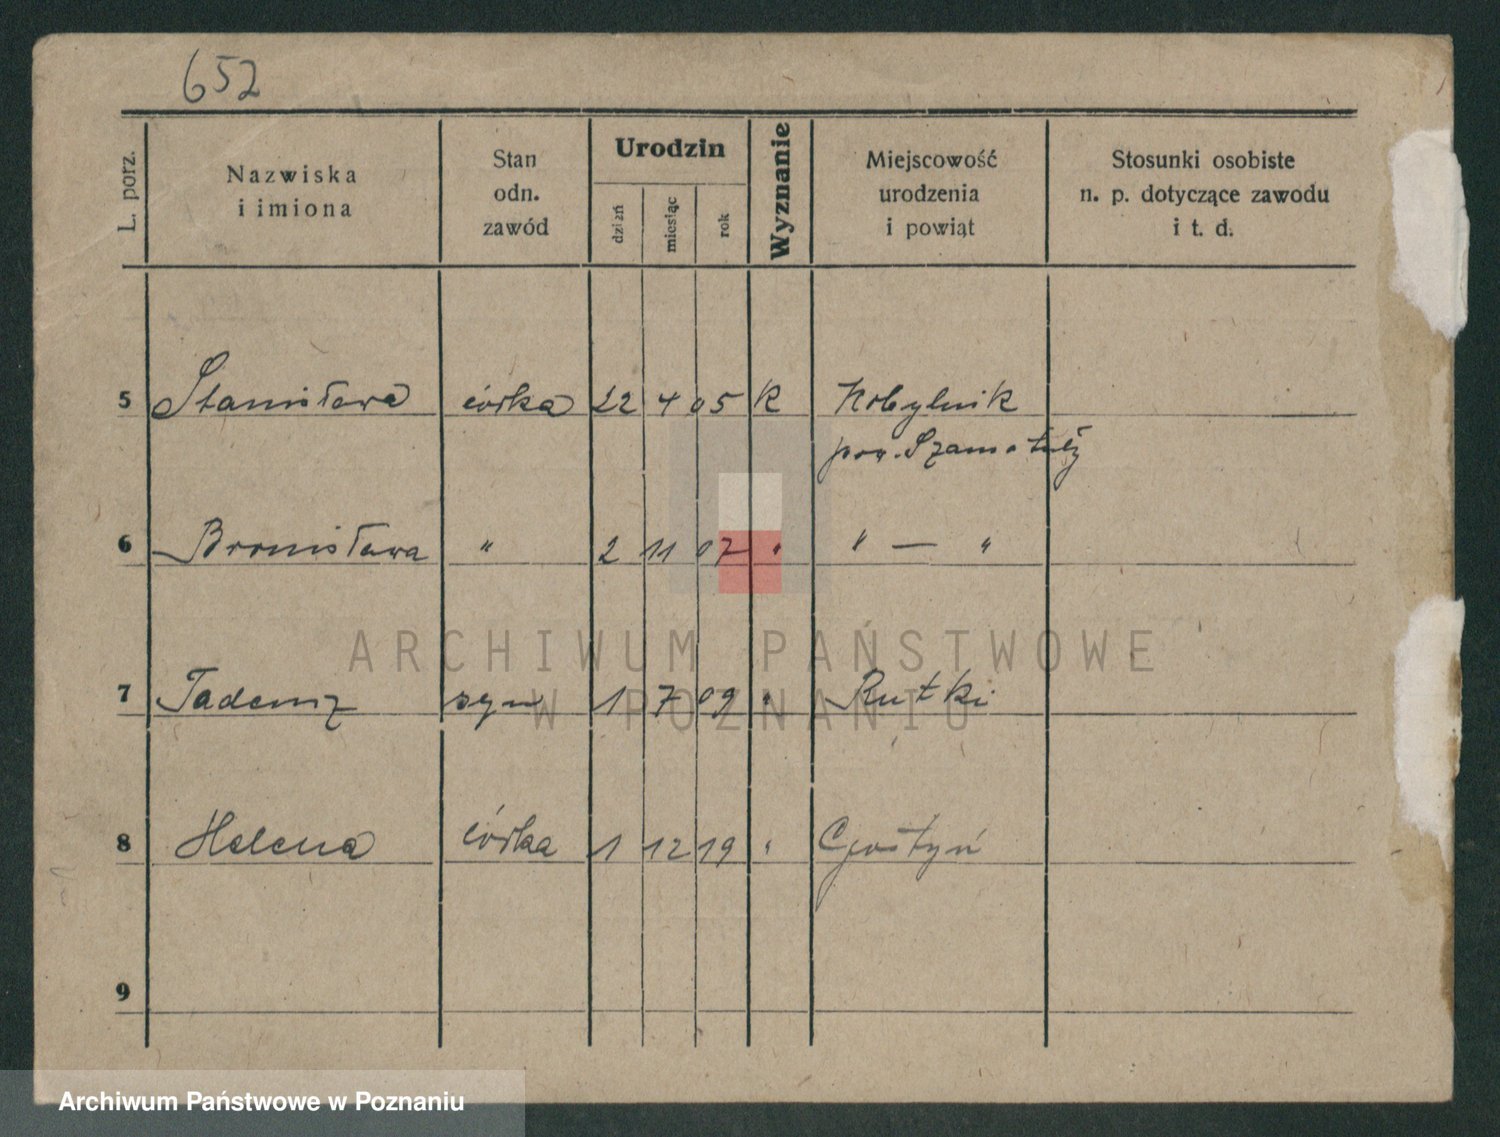 652
L. porz.
Nazwiska
i imiona
Stan
odn.
zawód
Urodzin
dzień
miesiąc
rok
Wyznanie
Miejscowość
urodzenia
i powiąt
Stosunki osobiste
n. p. dotyczące zawodu
i t. d.
5 Stanisława córka 22 4 05 K Kobylnik
pow. Szamotuły
6 Bronisława " 2 11 07 " " — "
7 Tadeusz syn 1 7 09 " Rutki
8 Helena córka 1 12 19 " Gostyń
9
ARCHIWUM PAŃSTWOWE
W POZNANIU
Archiwum Państwowe w Poznaniu